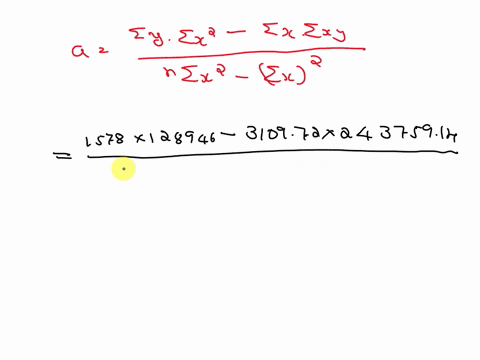 a = Σy. Σx² − Σx Σxy
nΣx² − (Σx)²
= 1578 × 128946 − 3109.72 × 243759.14